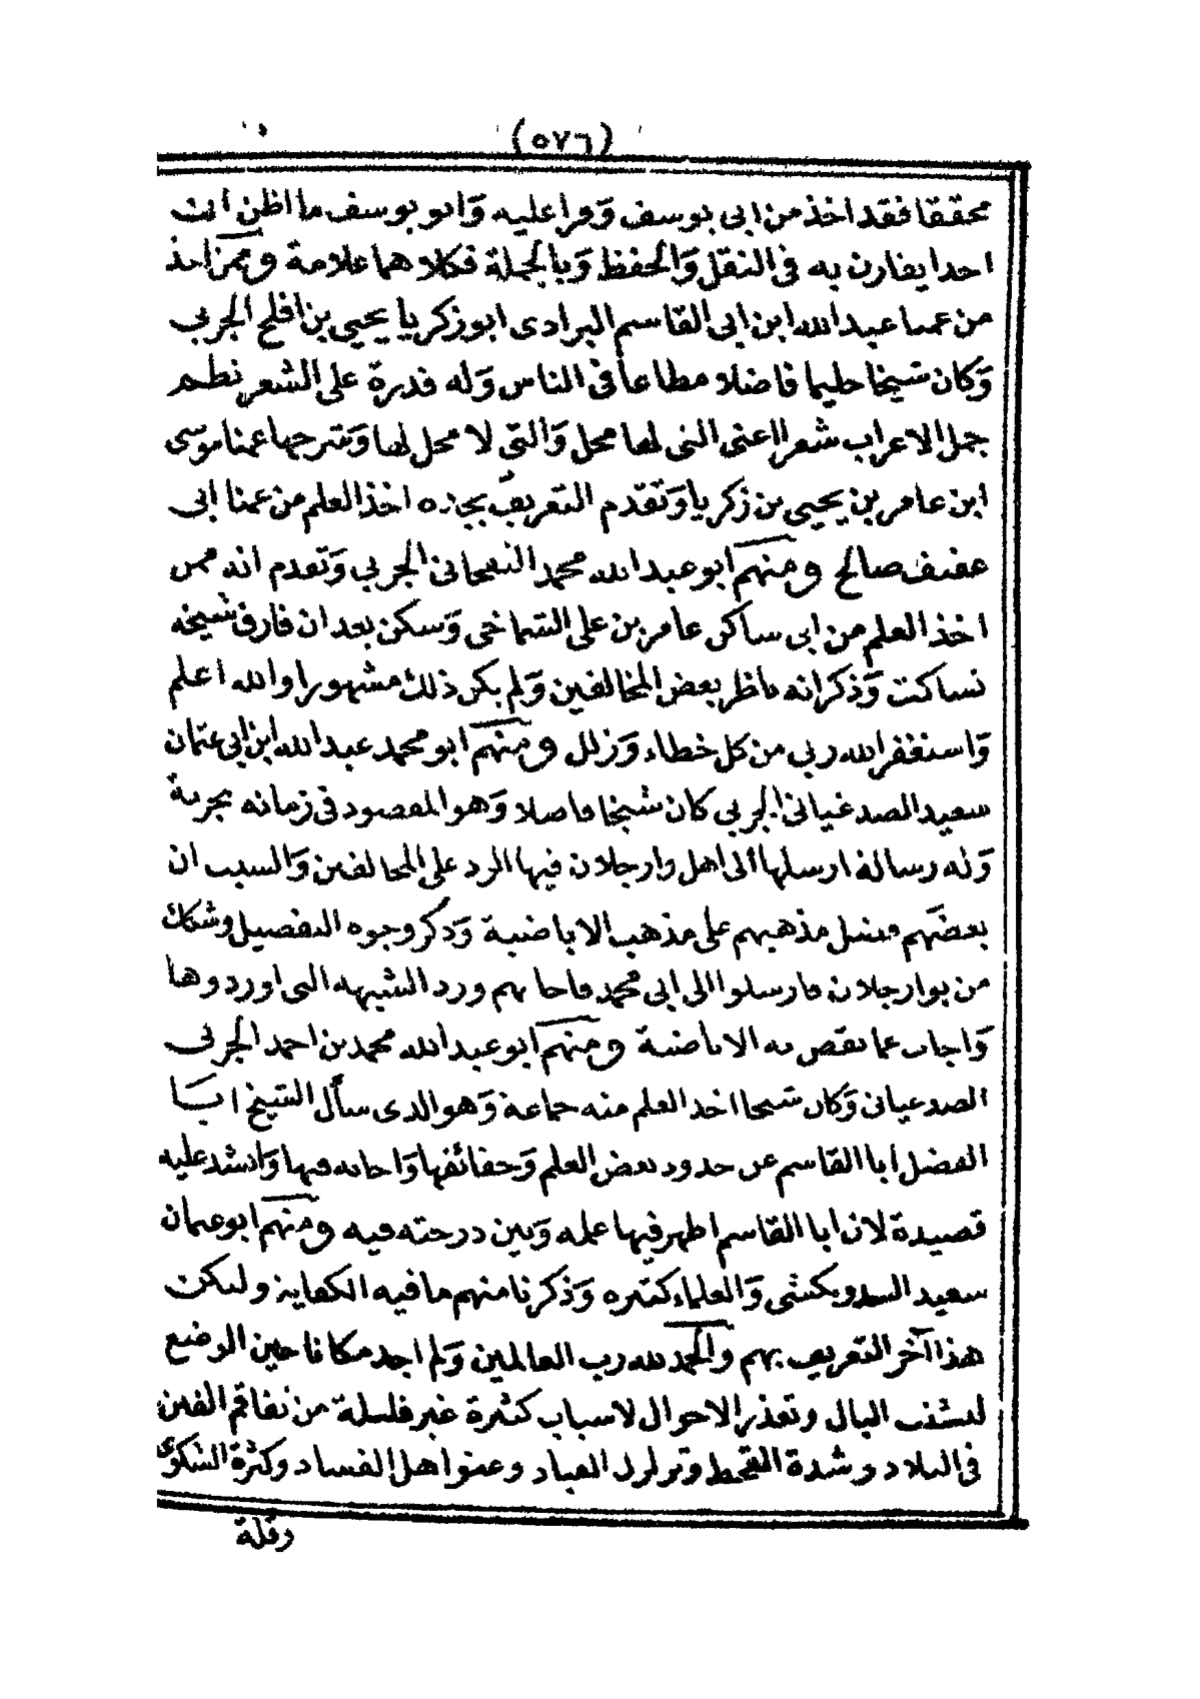 (٥٧٦)
محققا فقد اخذ من ابى يوسف وَقرا عليه وَابو يوسف ما اظن ان
احدا يقارن به فى النقل وَالحفظ وَبالجملة فكلاهما علامة وممن اخذ
من عمنا عبد الله ابن ابى القاسم البرادى ابو زكريا يحيى بن افلح الجربى
وَكان شيخا حليما فاضلا مطاعا فى الناس وَله قدرة على الشعر نظم
جمل الاعراب شعرا اعنى التى لها محل وَالتى لا محل لها وَشرحها عمنا موسى
ابن عامر بن يحيى بن زكريا وَتقدم التعريف بجده اخذ العلم من عمنا ابى
عفيف صالح ومنهم ابو عبد الله محمد الجربى وَتقدم انه ممن
اخذ العلم من ابى ساكن عامر بن على الشماخى وَسكن بعد ان فارق شيخه
تساكنت وَذكر انه ناظر بعض المخالفين وَلم يكن ذلك مشهورا والله اعلم
وَاستغفر الله ربى من كل خطاء وَزلل ومنهم ابو محمد عبد الله ابن ابى عثمان
سعيد الصدغيانى الجربى كان شيخا فاضلا وَهو المقصود فى زمانه بجربة
وَله رسالة ارسلها الى اهل وارجلان فيها الرد على المخالفين وَالسبب ان
بعضهم فضل مذهبهم على مذهب الاباضية وَذكر وجوه التفصيل وشكك
من بوارجلان فارسلوا الى ابى محمد فاجابهم ورد الشبهه التى اوردوها
وَاجاب عما نقص به الاباضية ومنهم ابو عبد الله محمد بن احمد الجربى
الصدغيانى وَكان شيخا اخذ العلم منه جماعة وَهو الذى سأل الشيخ ابا
الفضل ابا القاسم عن حدود بعض العلم وَحقائقها وَاجابه فيها وَانشد عليه
قصيدة لان ابا القاسم اظهر فيها علمه وَبين درجته فيه ومنهم ابو عثمان
سعيد السدويكشى وَالعلماء كثيره وَذكرنا منهم ما فيه الكفاية وليكن
هذا آخر التعريف بهم والحمد لله رب العالمين وَلم اجد مكانا حين الوضع
لتشتت البال وتعذر الاحوال لاسباب كثيرة غير قليلة من تفاقم الفتن
فى البلاد وشدة القحط وتزلزل العباد وعتو اهل الفساد وكثرة الشكوى
وقلة